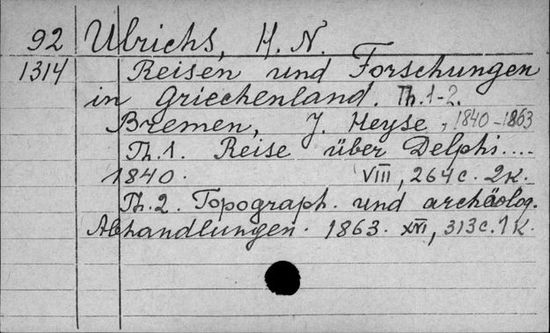 92 Ulrichs, H. N.
1314 Reisen und Forschungen
in Griechenland. Th. 1-2.
Bremen, J. Heyse, 1840-1863
Th. 1. Reise über Delphi....
1840. VIII, 264 c. 2 к.
Th. 2. Topograph. und archäolog.
Abhandlungen. 1863. XVI, 313 c. 1 к.